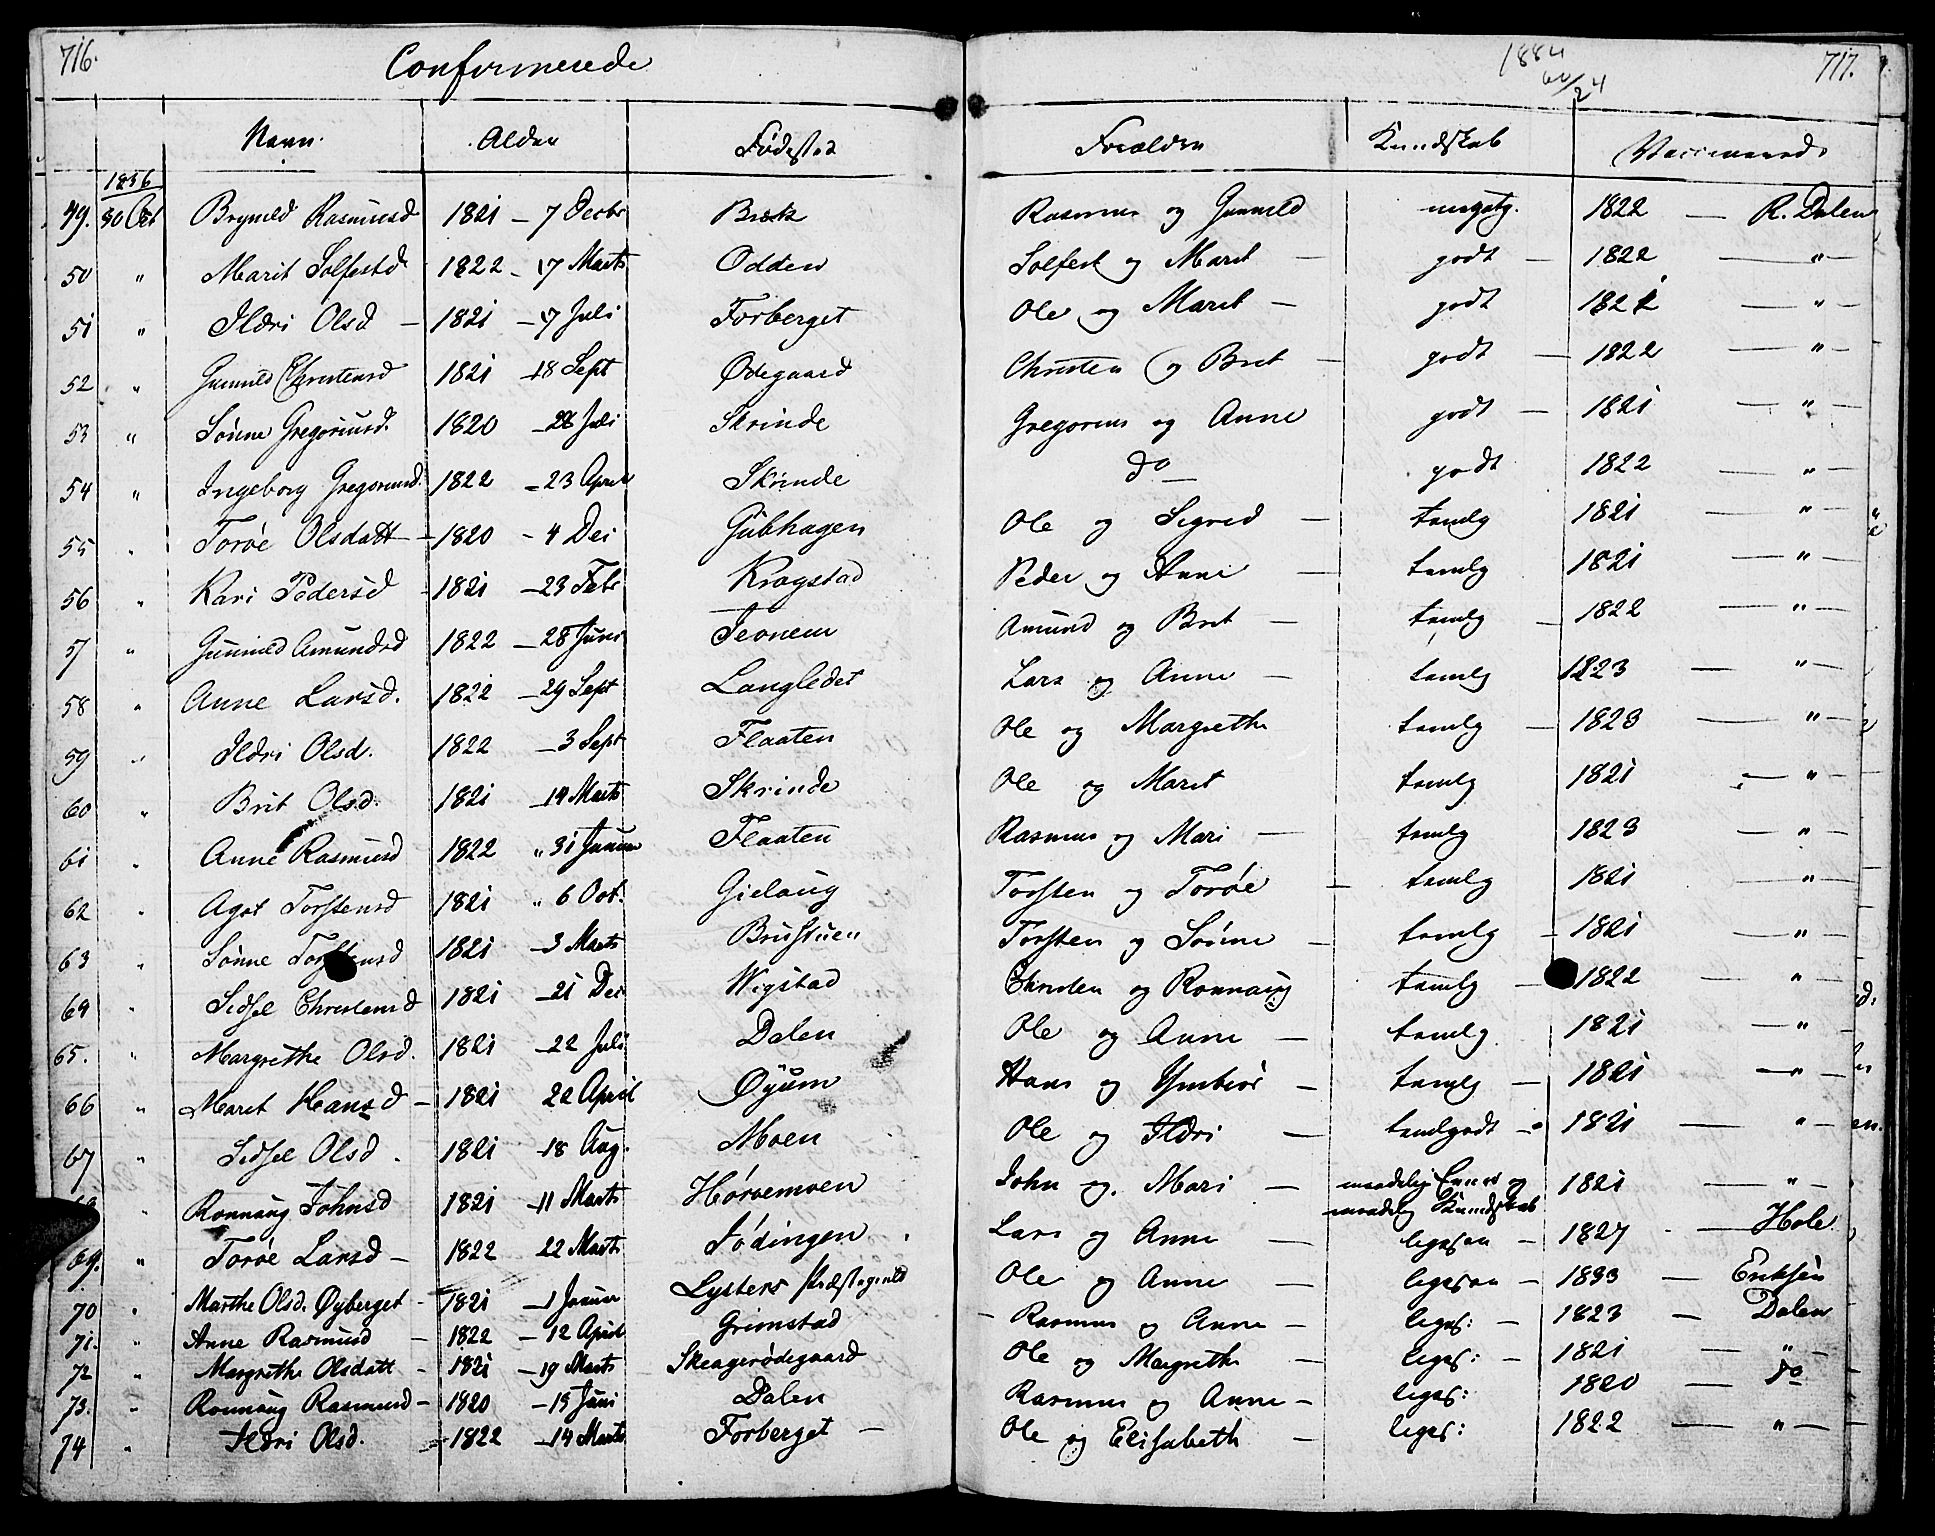 716. Confirmerede 1884 60/24 717.
Navn Alder Fødested Forældre Kundskab Vaccinerede
1836
49. 30 Oct Brynild Rasmusd 1821 – 7 Decbr Bræk Rasmus og Gunnild megetg. 1822 — R. Dalen
50 " Marit Solfestd 1822 – 17 Marts Odden Solfest og Marit – godt – 1822 — " —
51 " Ildri Olsd – 1821 – 17 Juli Forberget Ole og Marit – godt 1821 — "
52 " Gunnild Christensd 1821 – 18 Sept Ødegaard Christen og Brit – godt – 1822 — "
53 " Sønne Gregoriusd. 1820 – 26 Juli Skrinde Gregorius og Anne godt – 1821 — " —
54 " Ingeborg Gregoriusd. 1822 – 23 April Skrinde do – godt 1822 — " —
55 " Torøe Olsdatt – 1820 – 4 Dei Gubhagen Ole og Sigrid – tamlg 1821 — " —
56 " Kari Pedersd – 1821 – 23 Febr Kragstad Peder og Anne – tamlg 1821 — " —
57 " Gunnild Amundsd 1822 – 28 Juni Amund og Brit – tamlg – 1822 — " —
58 " Anne Larsd. 1822 – 29 Sept Langledet Lars og Anne – tamlg 1823 — " —
59 " Ildri Olsd. 1822 – 3 Sept Flaaten Ole og Margrethe tamlg – 1823 — " —
60 " Brit Olsd. 1821 – 14 Marts Skrinde Ole og Marit tamlg 1821 — " —
61 " Anne Rasmusd 1822 " 31 Januar Flaaten Rasmus og Mari – tamlg 1823 — " —
62 " Agot Torstensd 1821 " 6 Oct. Gielaug Torsten og Torøe – tamlg 1821 — " —
63 " Sønne Torstensd 1821 – 3 Marts Brustuen Torsten og Sønne – tamlg – 1821 — " —
64 " Sidsel Christensd 1821 – 21 Dei Wigstad Christen og Ronnaug tamlg – 1822 — " —
65. " Margrethe Olsd. 1821 – 22 Juli Dalen Ole og Anne – tamlg. 1821 — "
66 " Marit Hansd – 1821 22 April Øyum Hans og Ymbiør – tamlg – 1821 — " —
67 " Sidsel Olsd. 1821 – 18 Aug. Moen Ole og Ildri – tamlgodt – 1821 — " —
" Ronnaug Johnsd 1821 – 11 Marts Hørvemoen John og Mari – maadelig Evner og 1821 — " —
maadelig Kundskab
69. " Torøe Larsd – 1822 22 Marts Jødingen Lars og Anne – ligesaa – 1827 — Hole
70 " Marthe Olsd. Øyberget – 1821 – 1 Januar Lysters Præstegield Ole og Anne – ligesaa – 1833 — Eriksen
71. " Anne Rasmusd – 1822 – 12 April Grimstad – Rasmus og Anne – liges: – 1823 — Dalen
72 " Margrethe Olsdatt – 1821 – 19 Marts Skeagerødegaard Ole og Margrethe – liges: – 1821 — " —
73. " Ronnaug Rasmusd – 1820 – 15 Juni Dalen Rasmus og Anne – liges: 1820 — do
74 " Ildri Olsd. – 1822 – 14 Marts Forberget – Ole og Elisabeth – liges: 1822 — " —